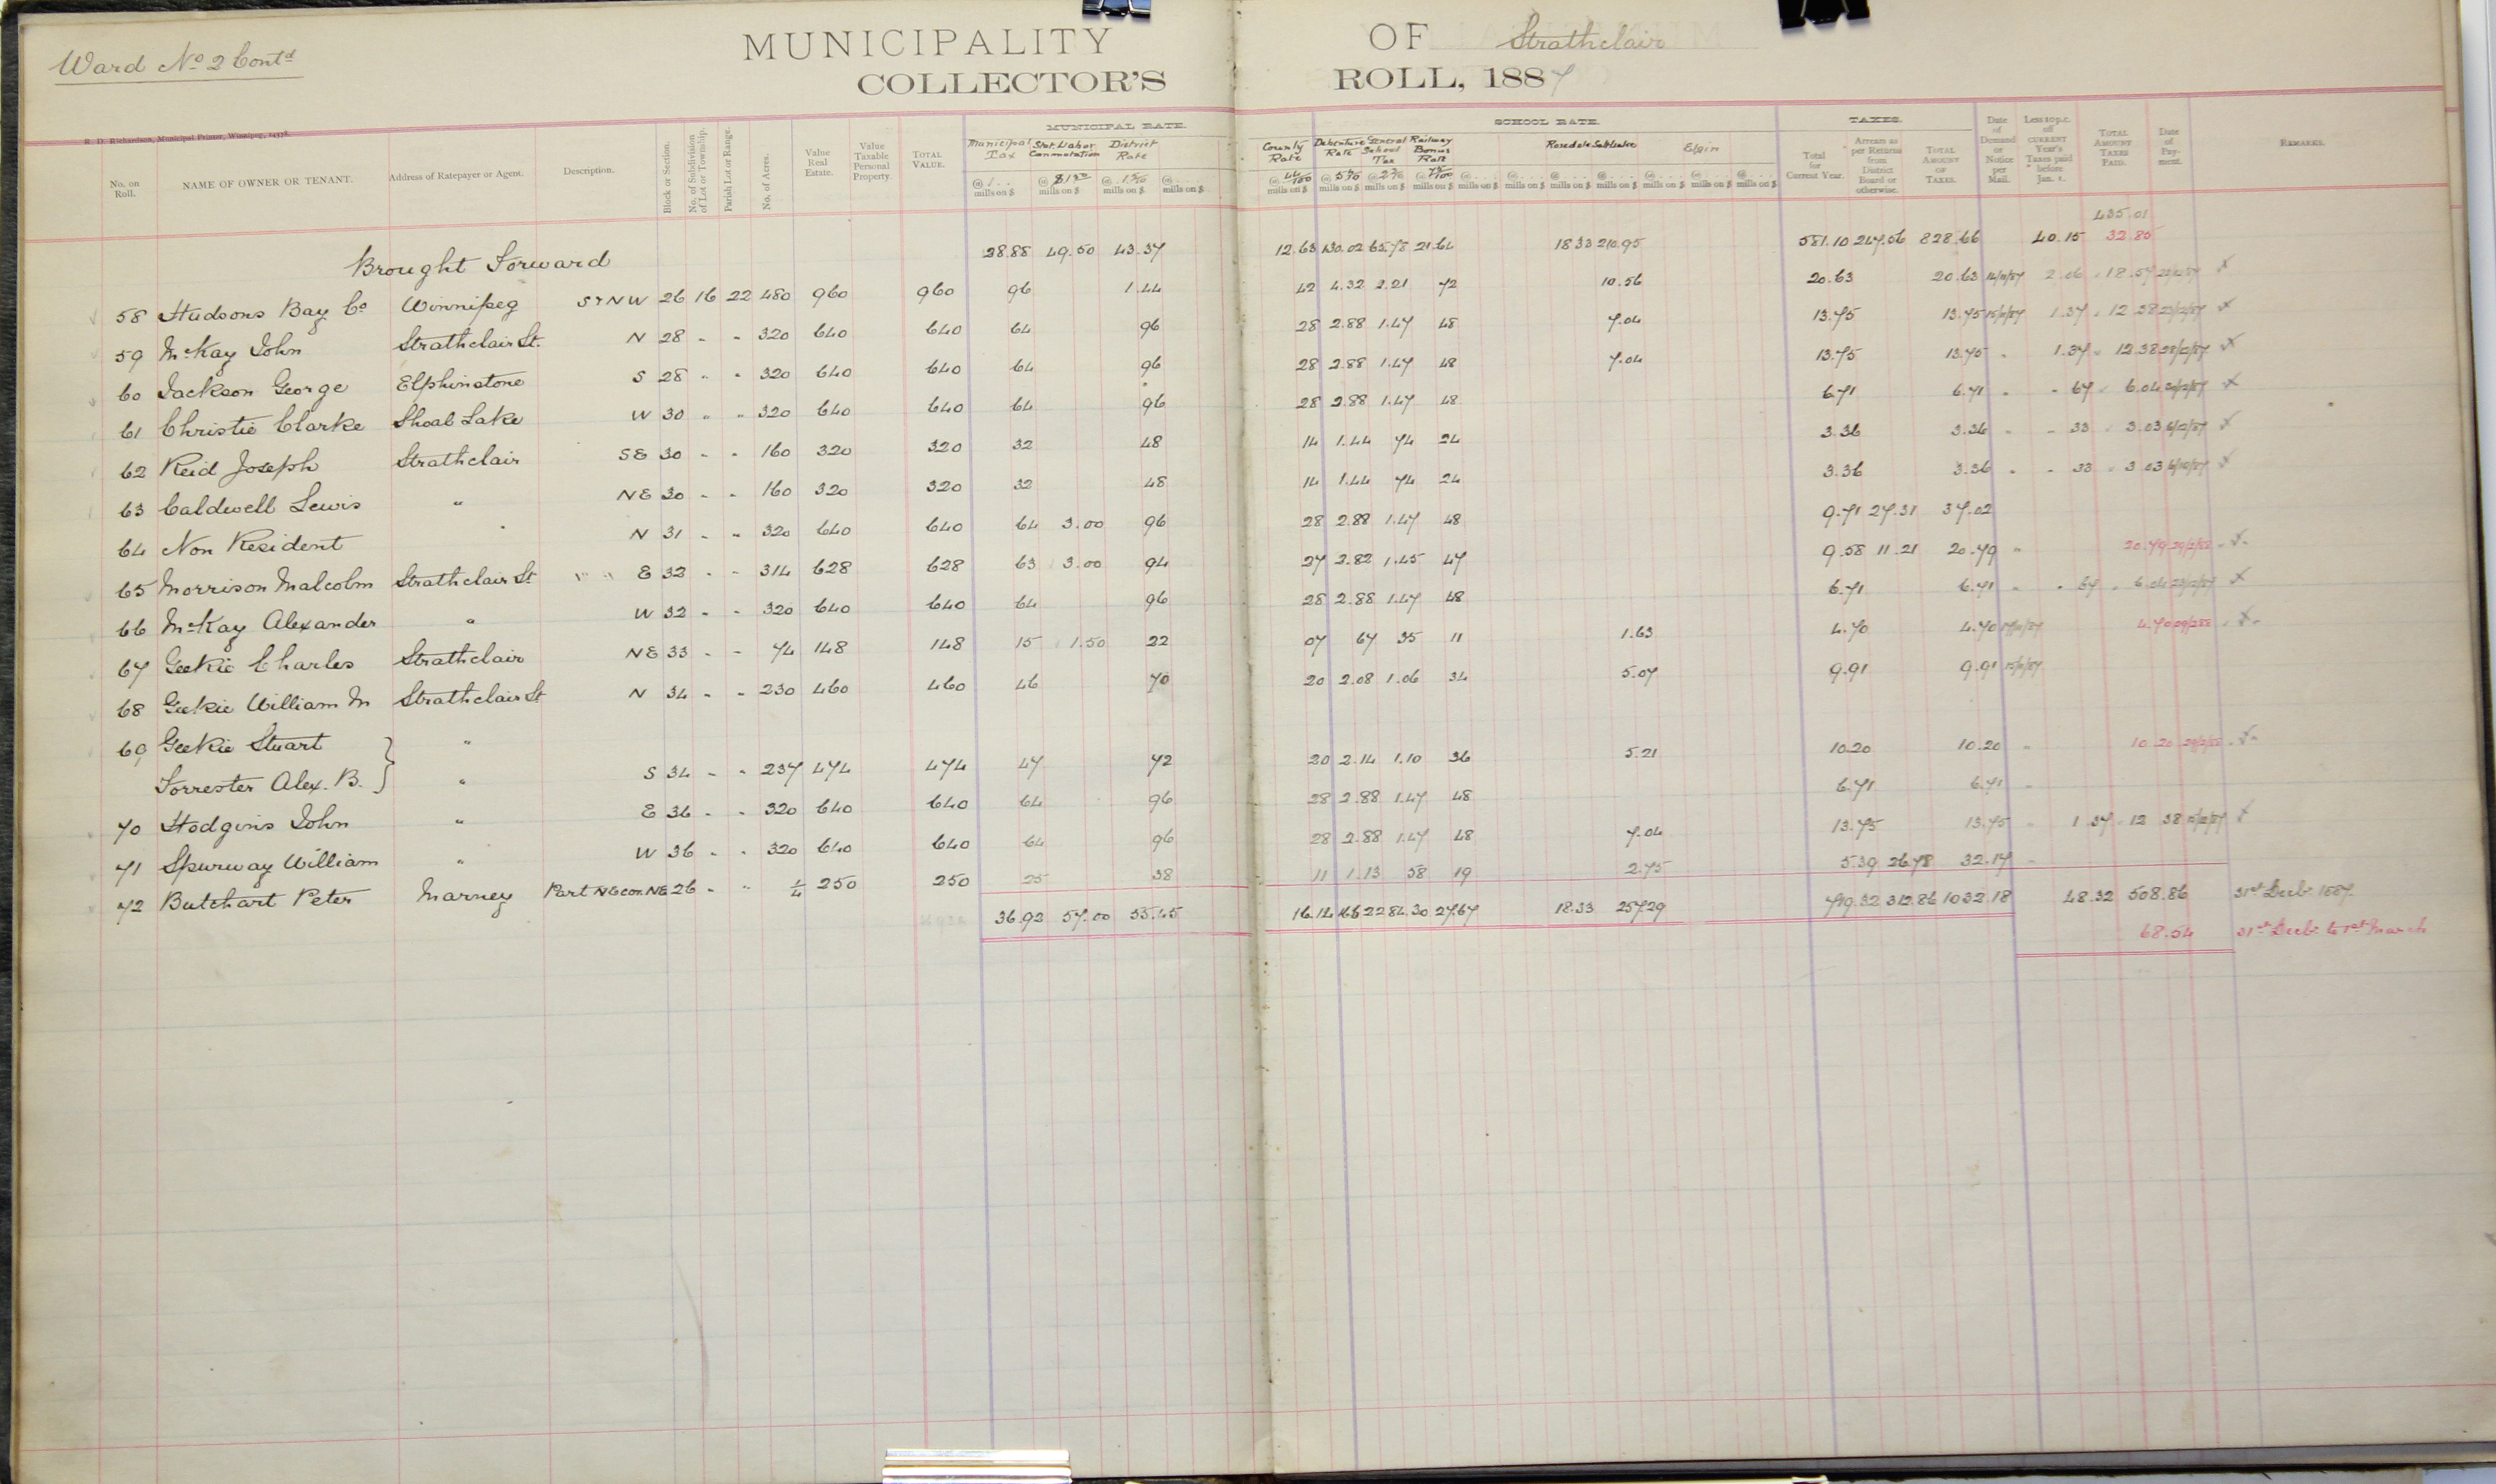 Ward No 2 Contd
MUNICIPALITY OF Strathclair
COLLECTOR'S ROLL, 1887
R. D. Richardson, Municipal Printer, Winnipeg,
MUNICIPAL RATE. SCHOOL RATE. TAXES.
No. on Roll. NAME OF OWNER OR TENANT. Address of Ratepayer or Agent. Description. Block or Section. No. of Subdivision of Lot or Township. Parish Lot or Range. No. of Acres. Value Real Estate. Value Taxable Personal Property. TOTAL VALUE. Municipal Tax Stat. Labor Commutation District Rate County Rate Debenture Rate General School Tax Railway Bonus Rate Rosedale Saltlake Elgin Total for Current Year. Arrears as per Returns from District Board or otherwise. TOTAL AMOUNT OF TAXES. Date of Demand or Notice per Mail. Less 10 p.c. off CURRENT Year's Taxes paid before Jan. 1. TOTAL AMOUNT TAXES PAID. Date of Payment. REMARKS.
435.01
Brought Forward 28.88 49.50 43.37 12.63 130.02 65.78 21.64 18.33 210.95 581.10 247.56 828.66 40.15 32.85
58 Hudsons Bay Co Winnipeg S & NW 26 16 22 480 960 960 96 1.44 42 4.32 2.21 72 10.56 20.63 20.63 2.06 18.57
59 McKay John Strathclair St. N 28 " " 320 640 640 64 96 28 2.88 1.47 48 7.04 13.75 13.75 1.37 12.38
60 Jackson George Elphinstone S 28 " " 320 640 640 64 96 28 2.88 1.47 48 7.04 13.75 13.75 " 1.37 12.38
61 Christie Clarke Shoal Lake W 30 " " 320 640 640 64 96 28 2.88 1.47 48 6.71 6.71 " 67 6.04
62 Reid Joseph Strathclair SE 30 " " 160 320 320 32 48 14 1.44 74 24 3.36 3.36 " 33 3.03
63 Caldwell Lewis " NE 30 " " 160 320 320 32 48 14 1.44 74 24 3.36 3.36 " 33 3.03
64 Non Resident N 31 " " 320 640 640 64 3.00 96 28 2.88 1.47 48 9.71 27.31 37.02
65 Morrison Malcolm Strathclair St E 32 " " 314 628 628 63 3.00 94 27 2.82 1.45 47 9.58 11.21 20.79 " 20.79
66 McKay Alexander " W 32 " " 320 640 640 64 96 28 2.88 1.47 48 6.71 6.71 " 67 6.04
67 Geekie Charles Strathclair NE 33 " " 74 148 148 15 1.50 22 07 67 35 11 1.63 4.70 4.70 4.70
68 Geekie William M Strathclair St N 34 " " 230 460 460 46 70 20 2.08 1.06 34 5.07 9.91 9.91
69 Geekie Stuart "
Forrester Alex. B. " S 34 " " 237 474 474 47 72 20 2.14 1.10 36 5.21 10.20 10.20 " 10.20
70 Hodgins John " E 36 " " 320 640 640 64 96 28 2.88 1.47 48 6.71 6.71 "
71 Spurway William " W 36 " " 320 640 640 64 96 28 2.88 1.47 48 7.04 13.75 13.75 " 1 37 12 38
72 Butchart Peter Marney Part NE cor. NE 26 " " 1/4 250 250 25 38 11 1.13 58 19 2.75 5.39 26.78 32.17 "
36.92 57.00 55.45 16.14 166.22 84.30 27.67 18.33 257.29 719.32 312.86 1032.18 48.32 508.86 31st Decbr 1887.
68.54 31st Decbr to 1st March